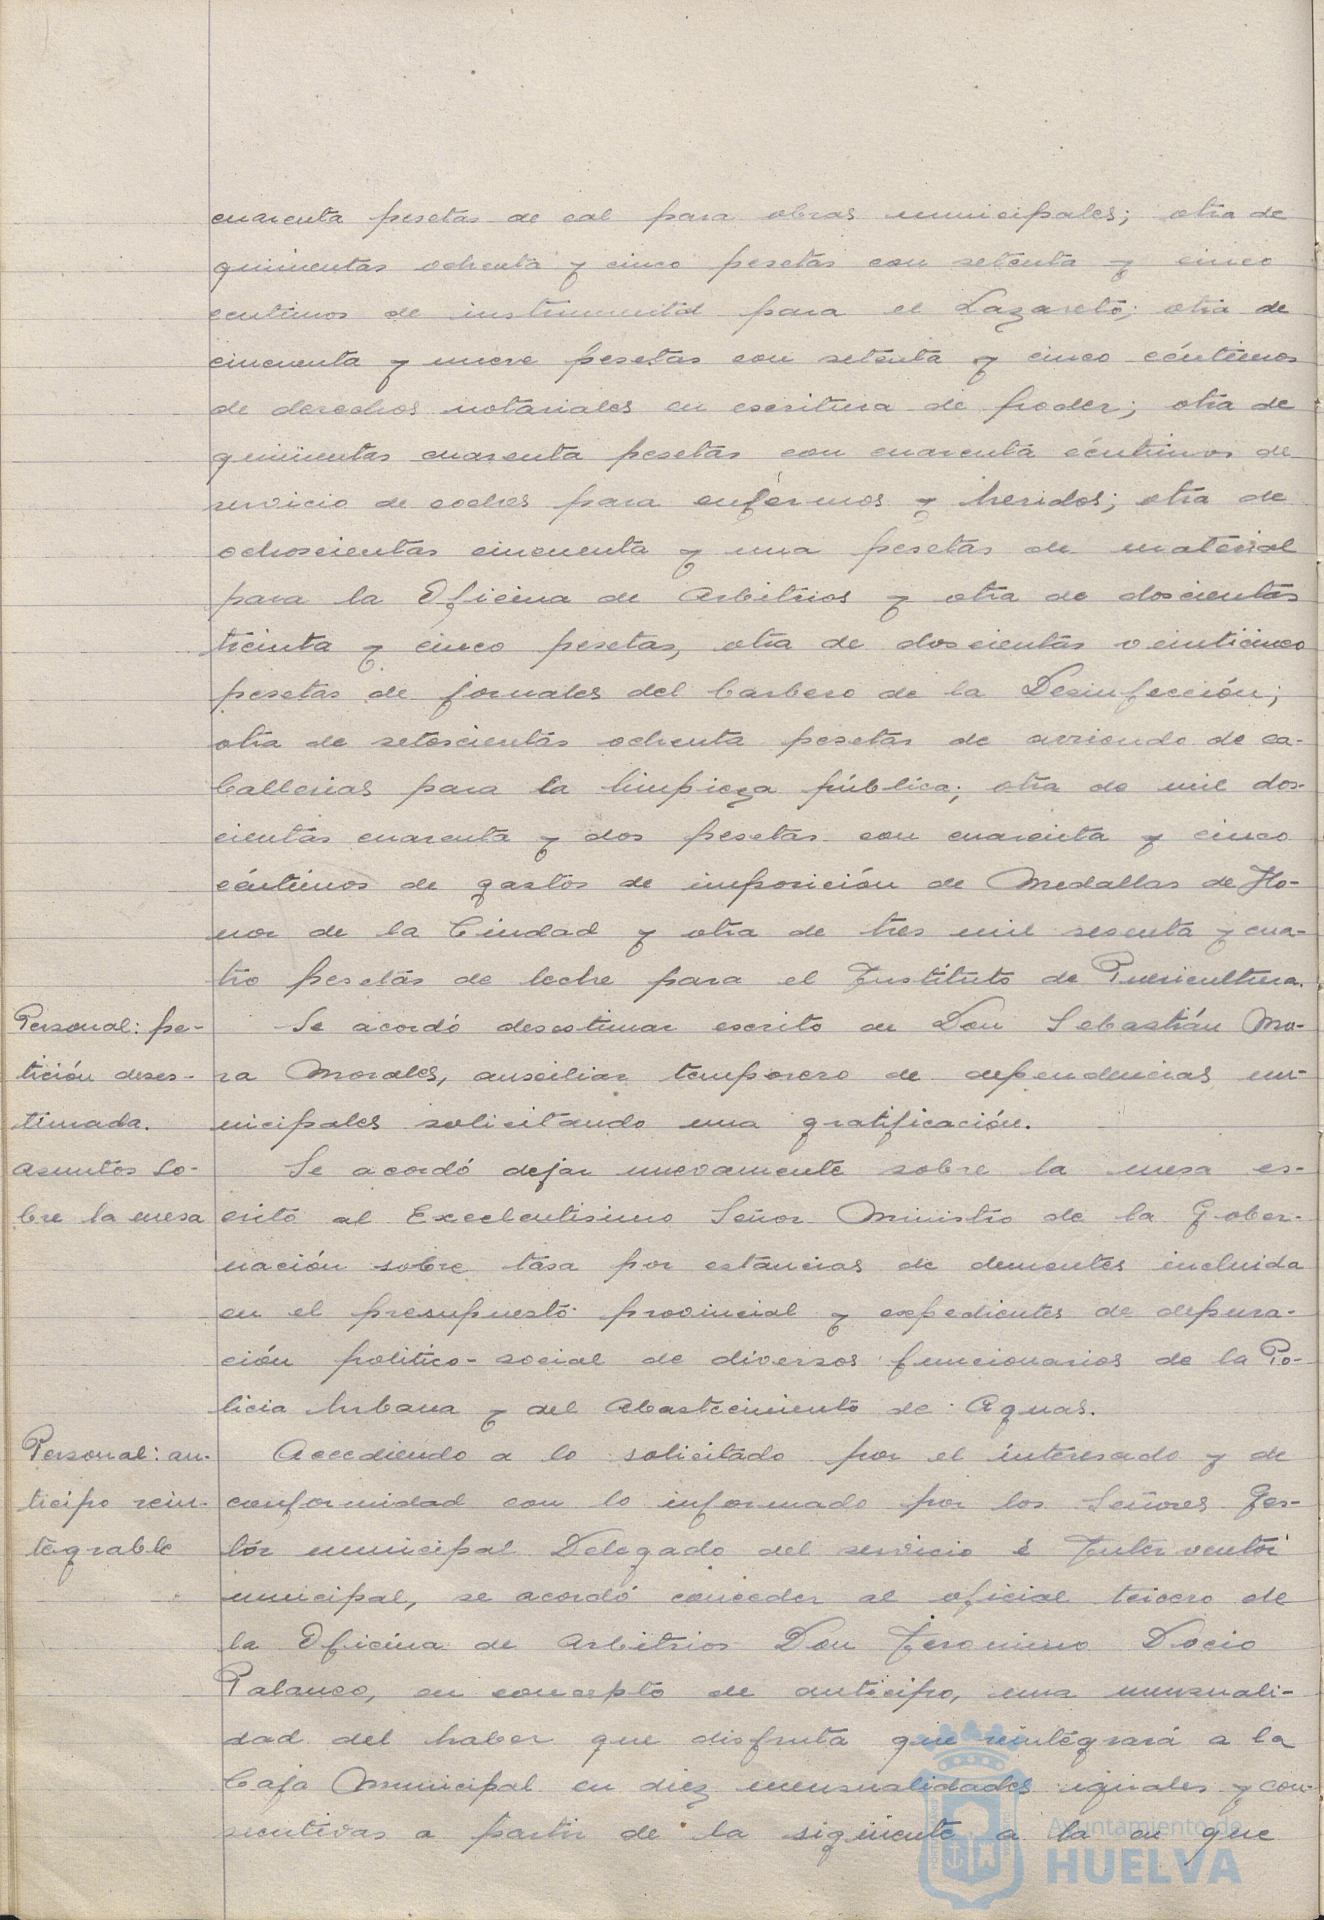 cuarenta pesetas de cal para obras municipales; otra de
quinientas ochenta y cinco pesetas con setenta y cinco
centimos de instrumental para el Lazareto; otra de
cincuenta y nueve pesetas con setenta y cinco céntimos
de derechos notariales en escritura de poder; otra de
quinientas cuarenta pesetas con cuarenta céntimos de
servicio de coches para enfermos y heridos; otra de
ochocientas cincuenta y una pesetas de material
para la Oficina de Arbitrios y otra de doscientas
treinta y cinco pesetas, otra de doscientas veinticinco
pesetas de jornales del barbero de la Desinfección;
otra de setecientas ochenta pesetas de arriendo de ca-
ballerias para la limpieza pública; otra de mil dos-
cientas cuarenta y dos pesetas con cuarenta y cinco
céntimos de gastos de imposición de Medallas de Ho-
nor de la Ciudad y otra de tres mil sesenta y cua-
tro pesetas de leche para el Instituto de Puericultura.
Personal: pe-
tición deses-
timada.
Se acordó desestimar escrito de Don Sebastián Mo-
ra Morales, auxiliar temporero de dependencias mu-
nicipales solicitando una gratificación.
Asuntos so-
bre la mesa
Se acordó dejar nuevamente sobre la mesa es-
crito al Excelentisimo Señor Ministro de la Gober-
nación sobre tasa por estancias de dementes incluida
en el presupuesto provincial y expedientes de depura-
ción politico-social de diversos funcionarios de la Po-
licia Urbana y del Abastecimiento de Aguas.
Personal: an-
ticipo rein-
tegrable
Accediendo a lo solicitado por el interesado y de
conformidad con lo informado por los Señores Ges-
tor municipal Delegado del servicio é Interventor
municipal, se acordó conceder al oficial tercero de
la Oficina de Arbitrios Don Jeronimo Docio
Palanco, en concepto de anticipo, una mensuali-
dad del haber que disfruta que reintegrará a la
Caja Municipal en diez mensualidades iguales y con-
secutivas a partir de la siguiente a la en que
Ayuntamiento de
HUELVA